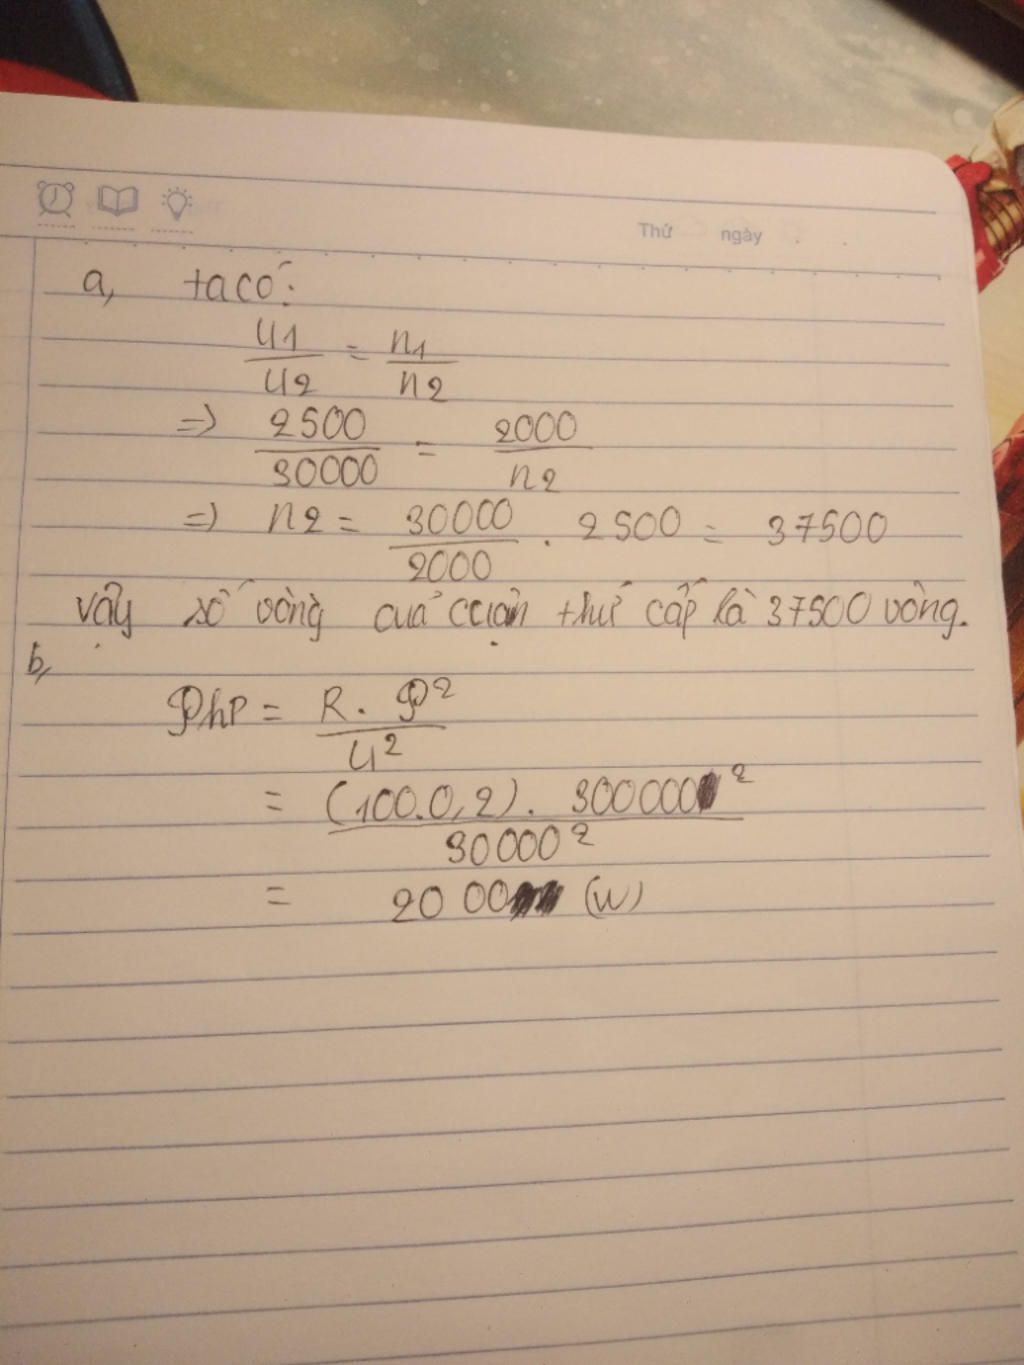 Thứ ngày
a, ta có:
U1/U2 = n1/n2
=> 2500/30000 = 2000/n2
=> n2 = 30000/2000 . 2500 = 37500
vậy số vòng cuả cuộn thứ cấp là 37500 vòng.
b,
Php = R. P²/U²
= (100.0,2). 300000²/30000²
= 2000 (W)